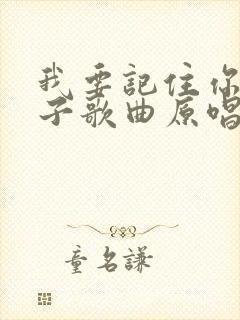 我要记住你
子歌曲原唱
童名謙